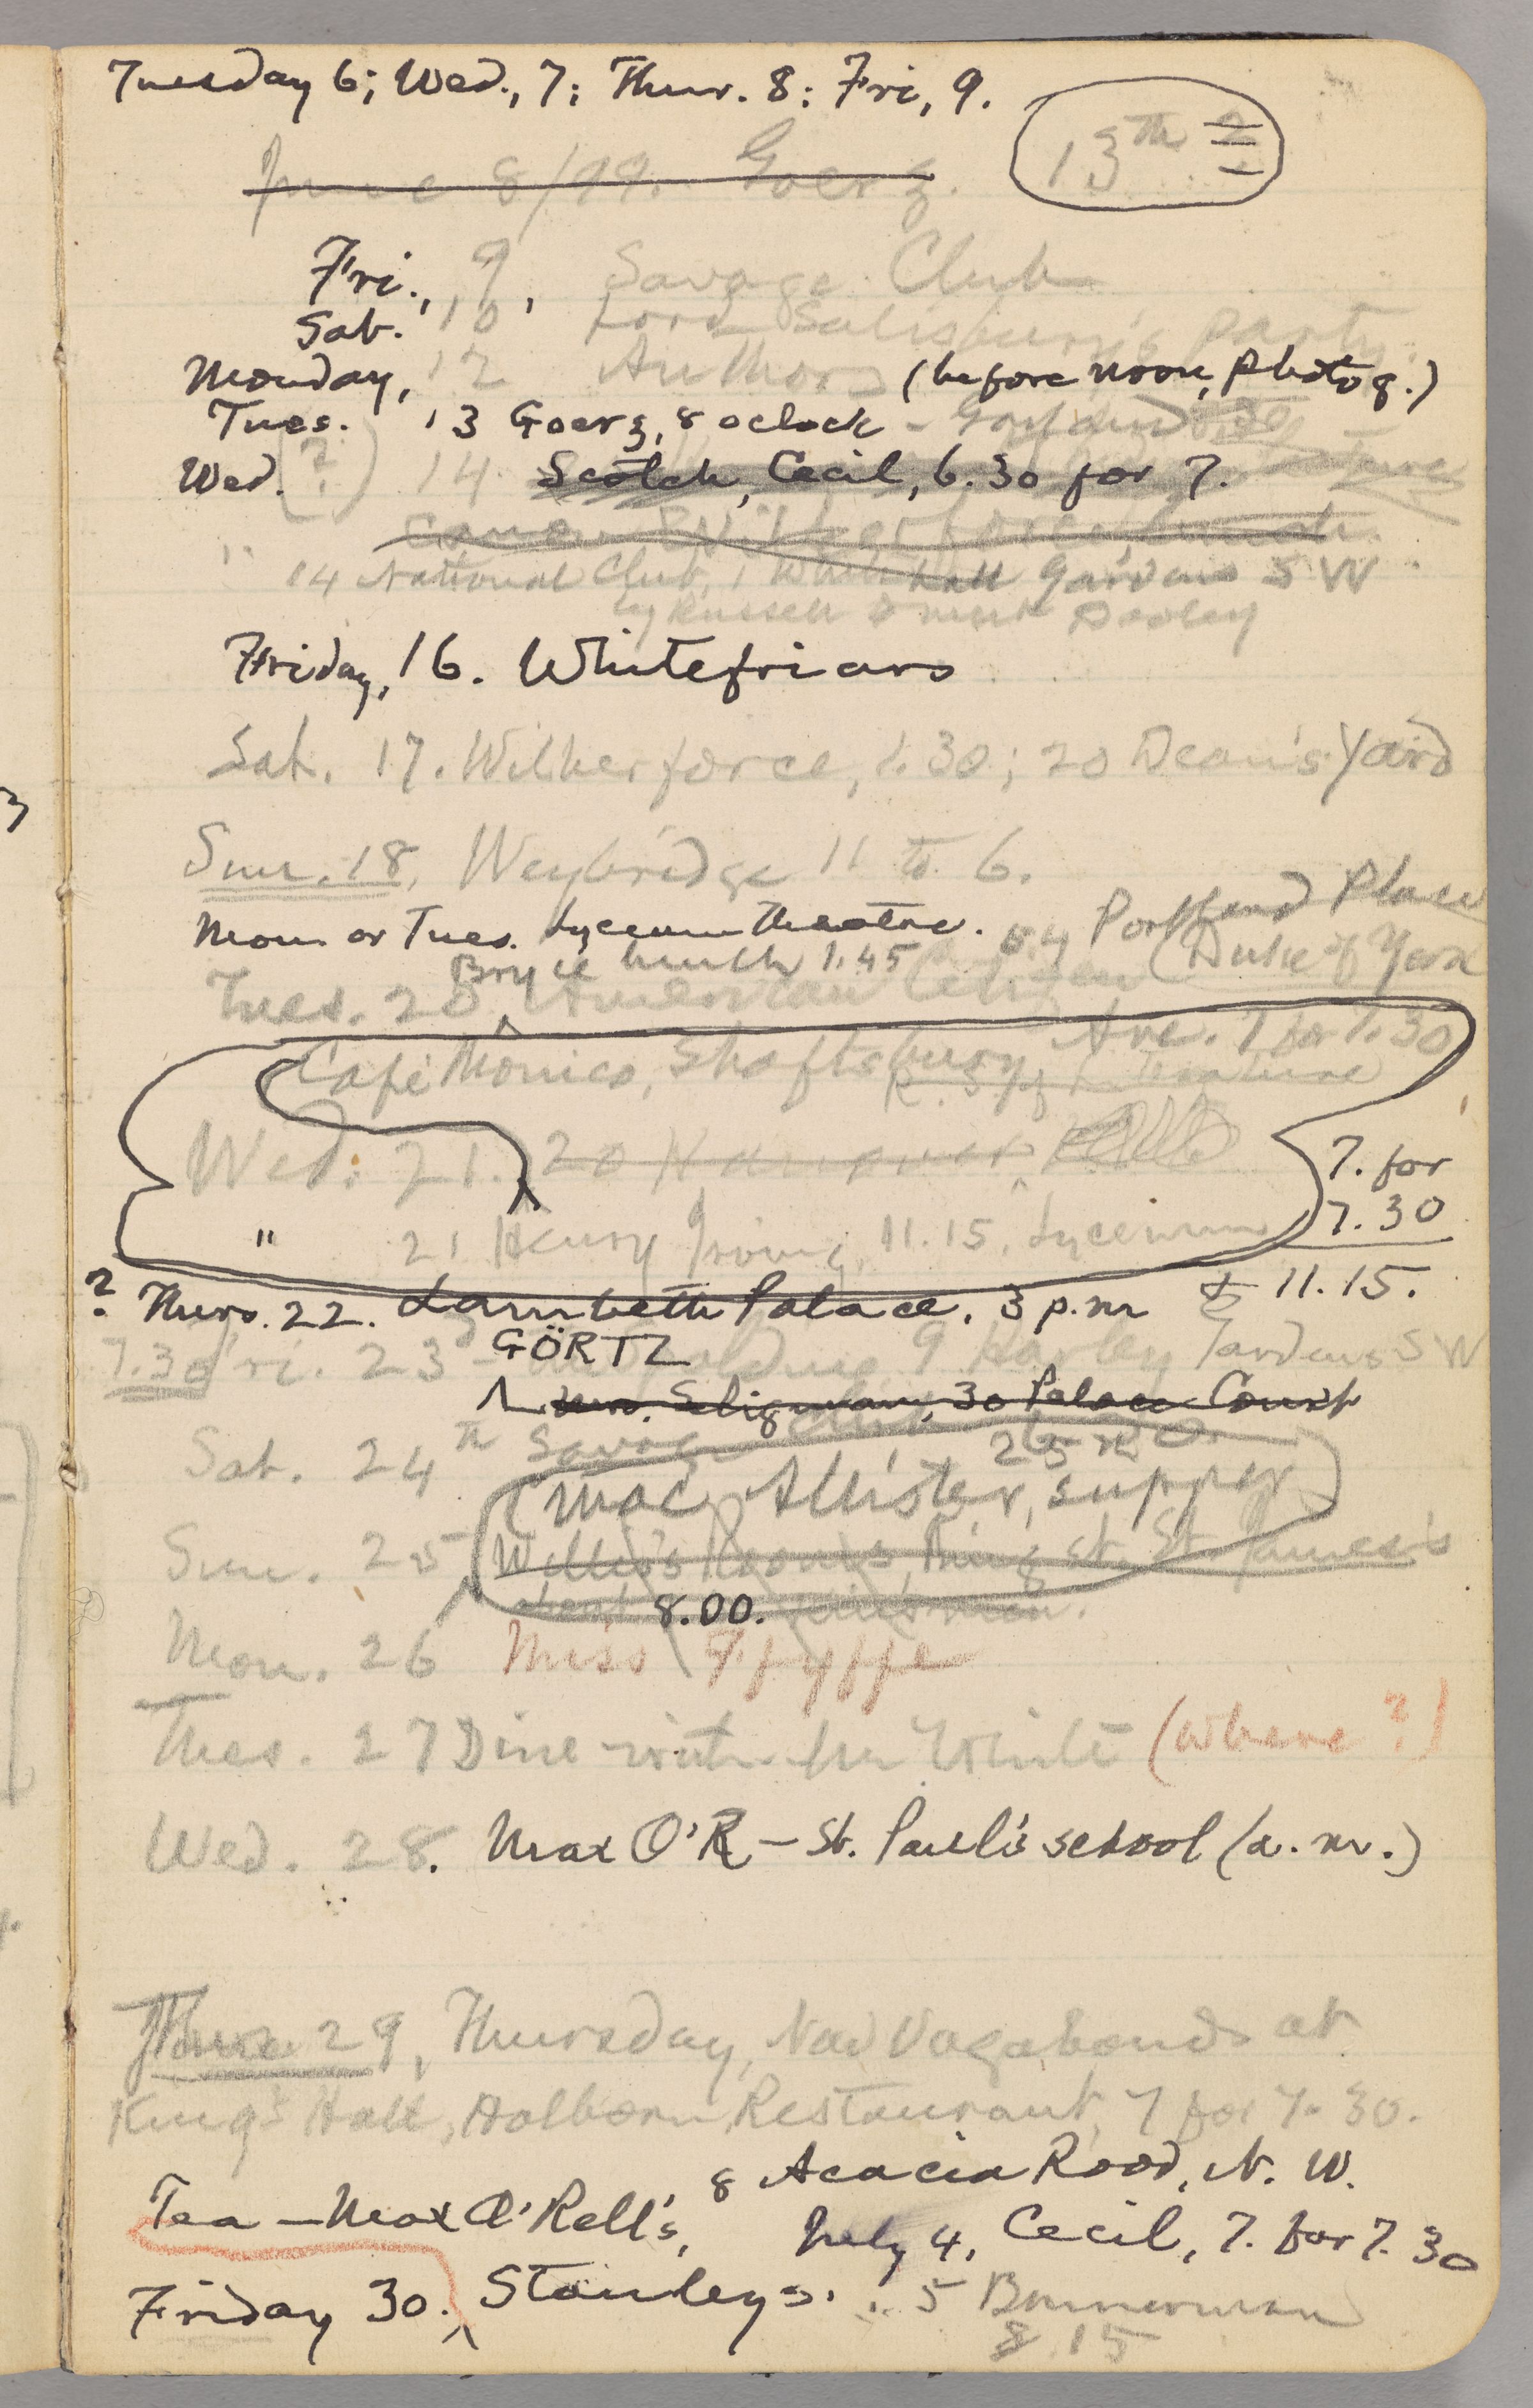 Tuesday 6; Wed., 7; Thur. 8; Fri, 9.
13th
June 8/99. Goerz.
Fri., 9, Savage Club
Sat. 10 Lord Salisbury's party
Monday, 12 Authors (before noon, photog.)
Tues. 13 Goerz, 8 oclock -
Wed. (?) 14 Scotch, Cecil, 6.30 for 7.
Wilberforce lunch.
14 National Club, 1 Whitehall Gardens S W
by Russell
Friday, 16. Whitefriars
Sat. 17. Wilberforce, 1.30; 20 Dean's Yard
Sun. 18, Weybridge 11 to 6.
Mon or Tues. Lyceum theatre. 54 Portland Place
Bryce lunch 1.45 (Duke of York
Tues. 20, American
Café Monico, Shaftsbury Ave. 7 for 7.30
R. S. of Literature
Wed. 21. 20 Hanover
7. for
7.30
" 21 Henry Irving, 11.15, Lyceum
& 11.15.
? Thurs. 22. Lambeth Palace, 3 p.m
GÖRTZ
7.30 Fri. 23 - 9 Harley Gardens S W
Mrs. Seligman, 30 Palace Court
Sat. 24th Savage Club
25th
(MacAllister, supper)
Sun. 25 Willis's Rooms, King st. St. James's
8.00.
Mon. 26 Miss Fyffe
Tues. 27 Dine with White (where?)
Wed. 28. Max O'R — St. Paul's school (a. m.)
June 29, Thursday, New Vagabonds at
King's Hall, Holborn Restaurant, 7 for 7.30.
8 Acacia Road, N. W.
Tea — Max O'Rell's,
July 4, Cecil, 7. for 7.30
Friday 30. Stanleys. 5 Bannerman
8.15